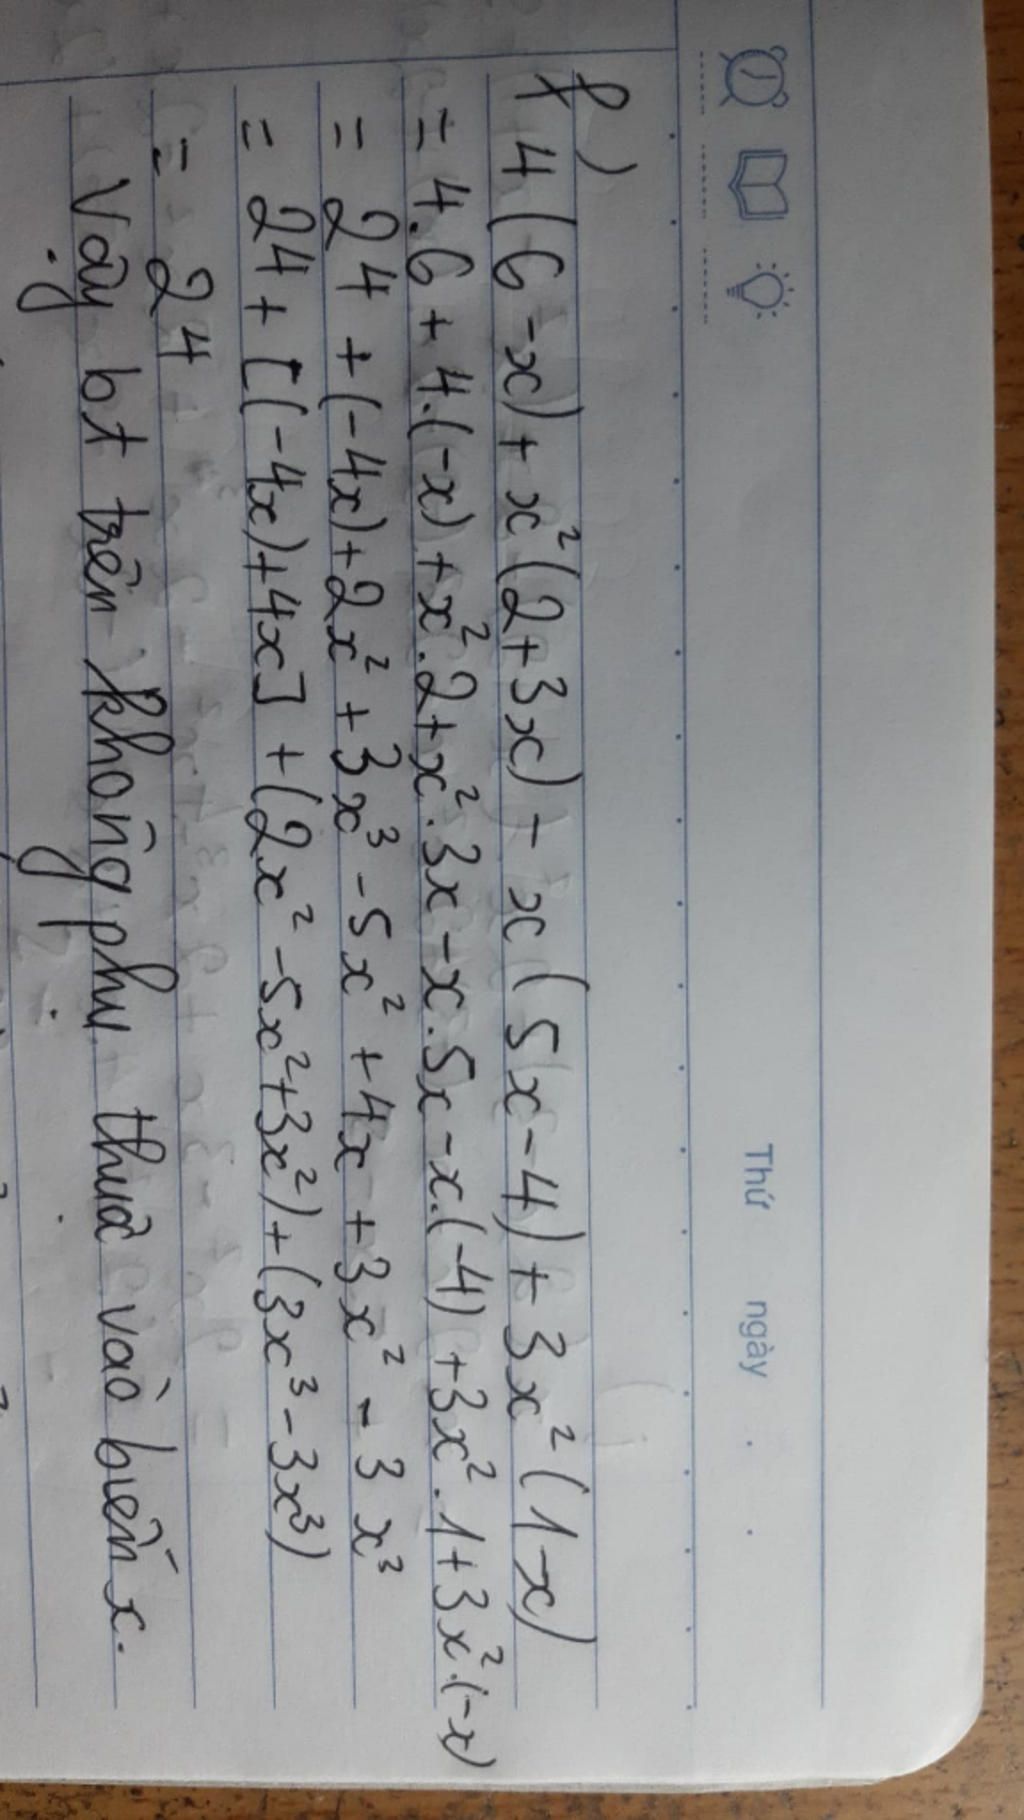 Thứ ngày
f)
4(6-x)+x²(2+3x)-x(5x-4)+3x²(1-x)
=4.6+4.(-x)+x².2+x².3x-x.5x-x.(-4)+3x².1+3x².(-x)
= 24+(-4x)+2x²+3x³-5x²+4x+3x²-3x³
= 24+[(-4x)+4x]+(2x²-5x²+3x²)+(3x³-3x³)
= 24
Vậy bt trên không phụ thuộc vào biến x.